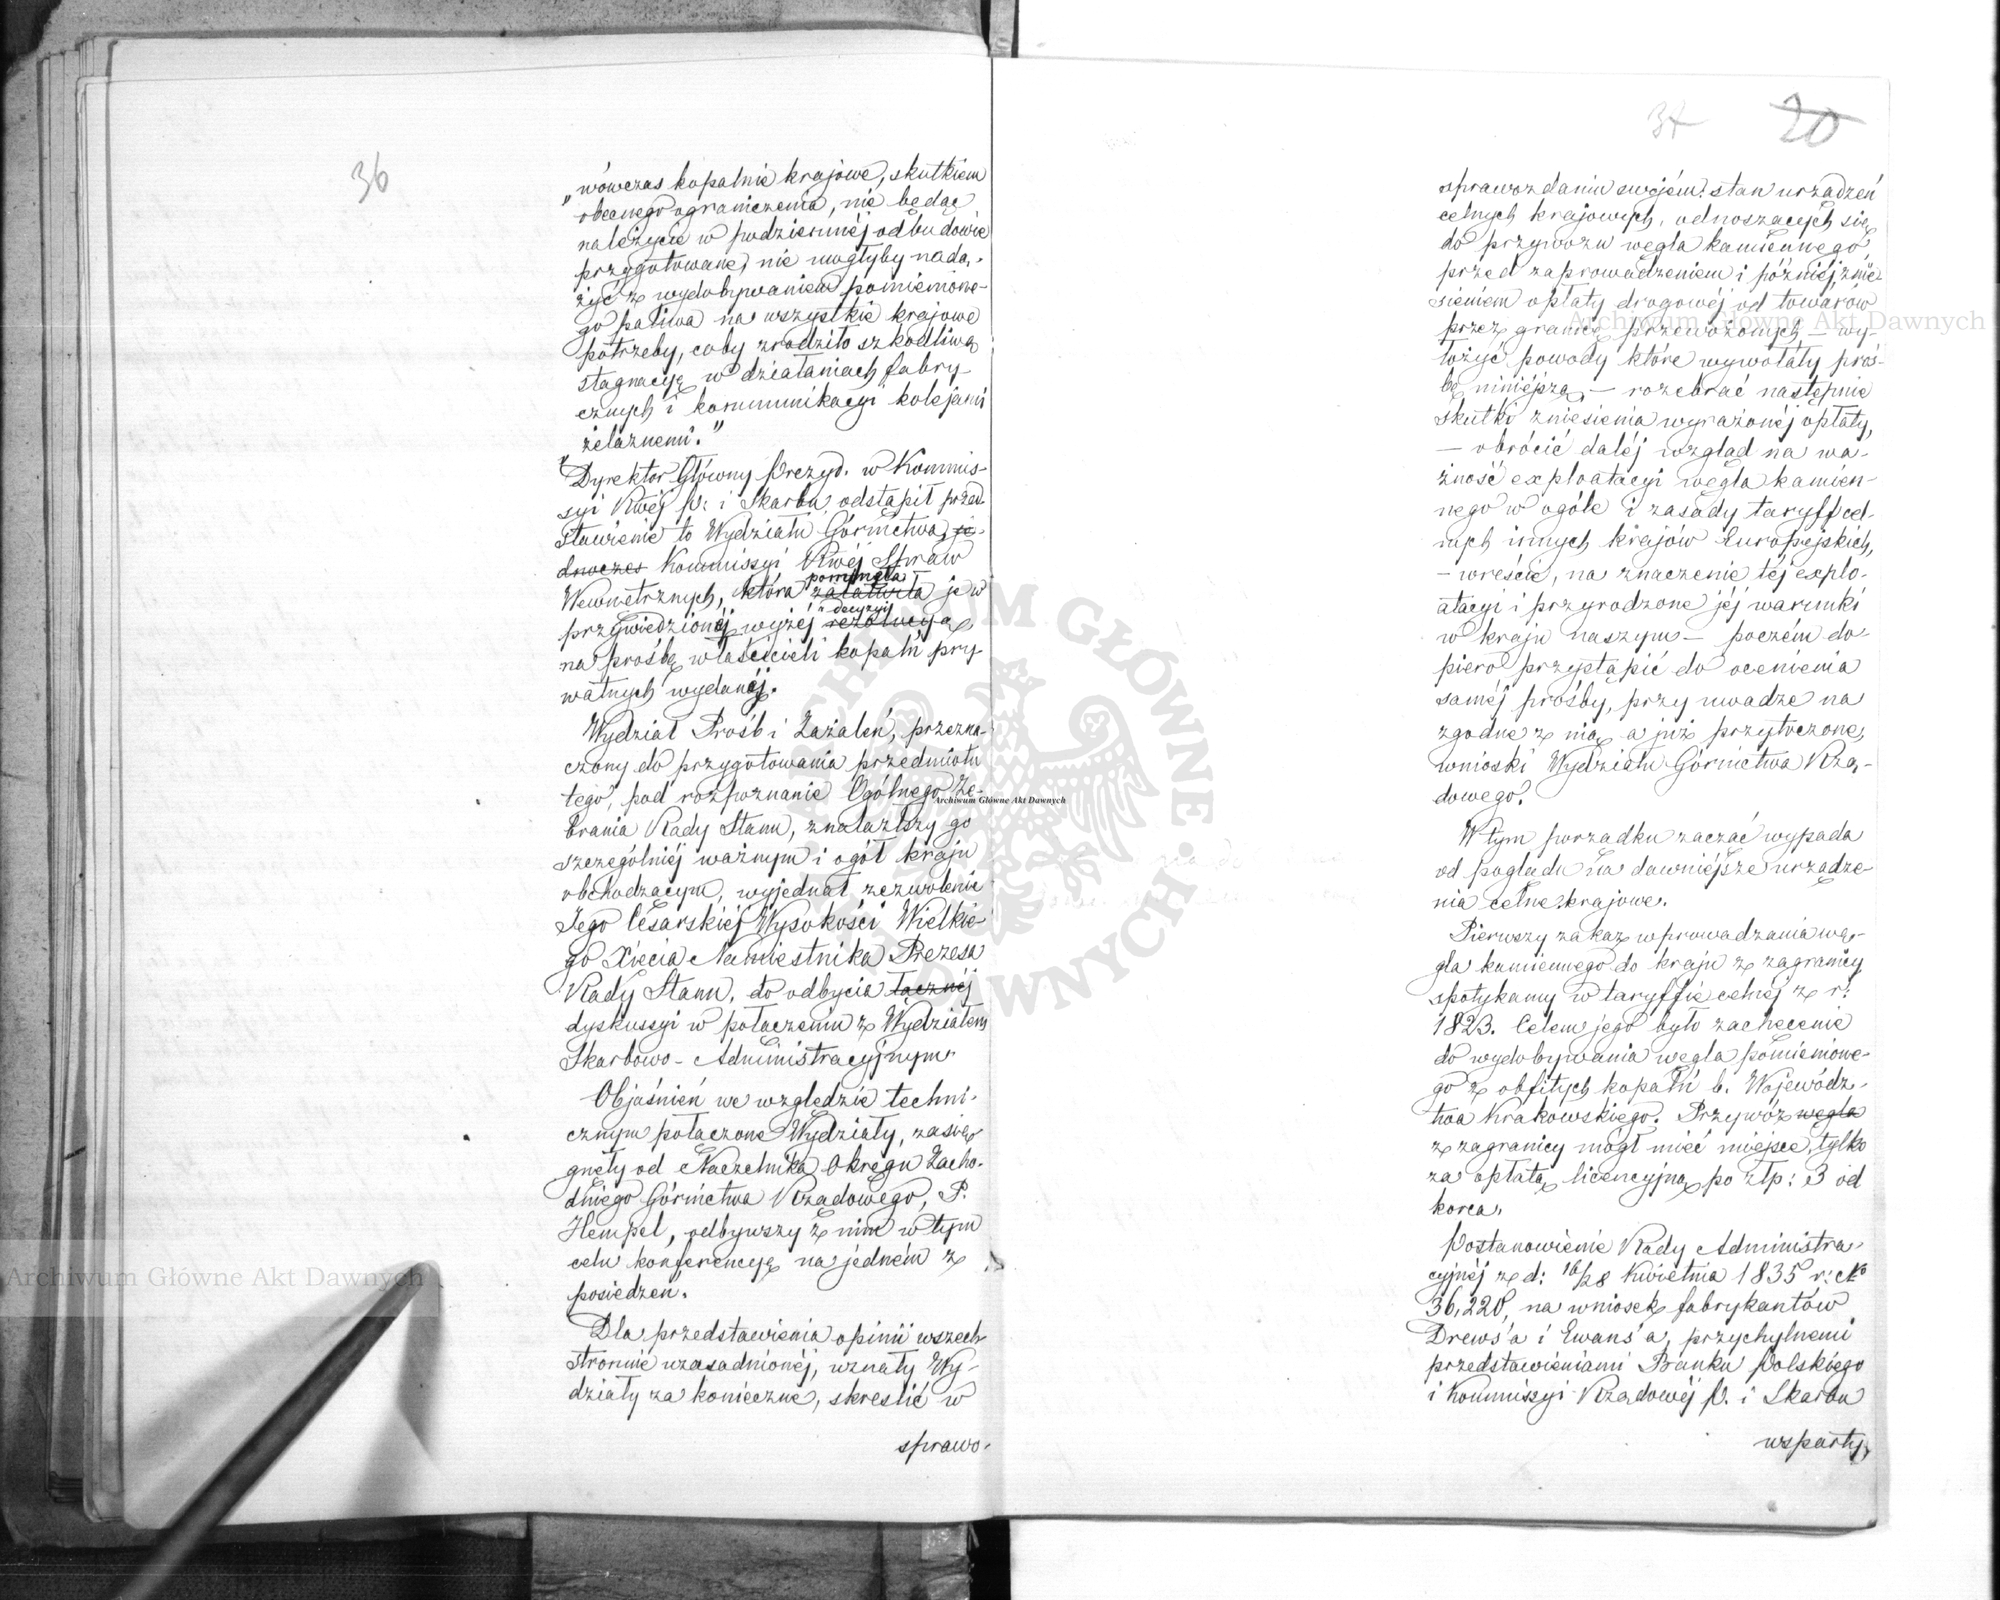 36
"wówczas kopalnie krajowe, skutkiem
obecnego ograniczenia, nie będąc
należycie w podziemnéj odbudowie
przygotowane, nie mogłyby nadą-
żyć z wydobywaniem pomienione-
go paliwa na wszystkie krajowe
potrzeby, coby zrodziło szkodliwą
stagnacyę w działaniach fabry-
cznych i kommunikacyi kolejami
żelaznemi."
"Dyrektor Główny Prezyd. w Kommis-
syi Rwéj P. i Skarbu, odstąpił przed-
stawienie to Wydziału Górnictwa, je-
dnoczes Kommissyi Rwéj Spraw
Wewnętrznych, która zalatwiła je w
pominęła
przywiedzionéj wyżéj rezolucyą
decyzyi
na prośbę właścicieli kopalń pry
watnych wydanéj.
Wydział Prośb i Zażaleń, przezna-
czony do przygotowania przedmiotu
tego, pod rozpoznanie Ogólnego Ze-
brania Rady Stanu, znalazłszy go
szczególniéj ważnym i ogół kraju
obchodzącym, wyjednał zezwolenie
Jego Cesarskiéj Wysokości Wielkie-
go Xięcia Namiestnika Prezesa
Rady Stanu, do odbycia łącznéj
dyskussyi w połączeniu z Wydziałem
Skarbowo-Administracyjnym
Objaśnień we względzie techni-
cznym połączone Wydziały, zasię-
gnęły od Naczelnika Okręgu Zacho-
dniego Górnictwa Rządowego, P.
Hempel, odbywszy z nim w tym
celu konferencyę na jedném z
posiedzeń.
Dla przedstawienia opinii wszech
stronnie uzasadnionéj, uznały Wy-
działy za konieczne, skreślić w
sprawo-
37 20
sprawozdaniu swojém: stan urządzeń
celnych krajowych, odnoszących się
do przywozu węgla kamiennego,
przed zaprowadzeniem i późniéj, znie-
sieniem opłaty drogowéj od towarów
przez granicę przewożonych, – wy-
łożyć powody które wywołały proś-
bę niniéjszą, – rozebrać następnie
skutki zniesienia wyrażonéj opłaty,
– obrócić daléj wzgląd na wa-
żność exploatacyi węgla kamien-
nego w ogóle i zasady taryff cel-
nych innych krajów Europejskich,
– wreście, na znaczenie téj explo-
atacyi i przyrodzone jéj warunki
w kraju naszym – poczém do-
piero przystąpić do ocenienia
saméj prośby, przy uwadze na
zgodne z nią a już przytoczone,
wnioski Wydziału Górnictwa Rzą-
dowego.
W tym porządku zacząć wypada
od poglądu na dawniéjsze urządze-
nia celne krajowe.
Pierwszy zakaz wprowadzania wę-
gla kamiennego do kraju z zagranicy
spotykamy w taryffie celnéj z r:
1823. Celem jego było zachęcenie
do wydobywania węgla pomienione-
go z obfitych kopalń b. Wojewódz-
twa Krakowskiego. Przywóz węgla
z zagranicy mógł mieć miejsce, tylko
za opłatą licencyjną po złp: 3 od
korca.
Postanowienie Rady Administra-
cyjnéj z d: 16/28 Kwietnia 1835 r: No
36,220, na wniosek fabrykantów
Drews'a i Ewans'a, przychylnemi
przedstawieniami Banku Polskiego
i Kommissyi Rządowéj P. i Skarbu
wsparty,
Archiwum Główne Akt Dawnych
Archiwum Główne Akt Dawnych
Archiwum Główne Akt Dawnych
ARCHIWUM GŁÓWNE AKT DAWNYCH